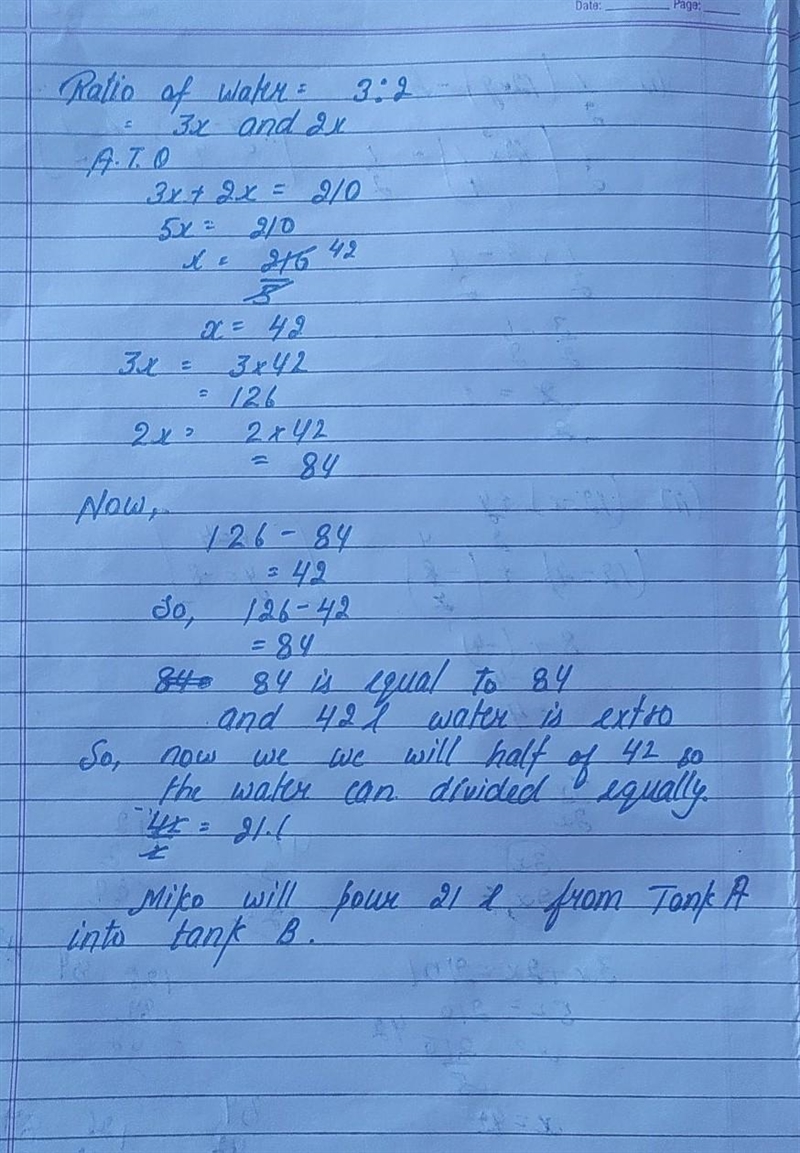 Date: Page:
Ratio of water = 3:2
= 3x and 2x
A.T.Q
3x + 2x = 210
5x = 210
x = 210 42
5
x = 42
3x = 3x42
= 126
2x = 2x42
= 84
Now,
126 - 84
= 42
So, 126 - 42
= 84
84 is equal to 84
and 42 l water is extro
So, now we we will half of 42 so
the water can divided equally.
= 21 l
Miko will pour 21 l, from Tank A
into tank B.